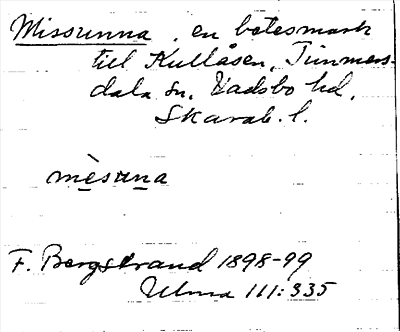 Missunna, en betesmark
till Kullåsen, Timmers-
dala sn, Vadsbo hd,
Skarab. l.
mèsuna
F. Bergstrand 1898-99
Ulma 111:335